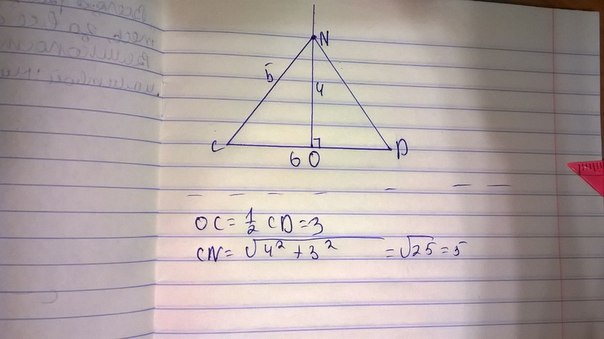 N
5
4
C
6 O
D
OC = 1/2 CD = 3
CN = √4² + 3² = √25 = 5